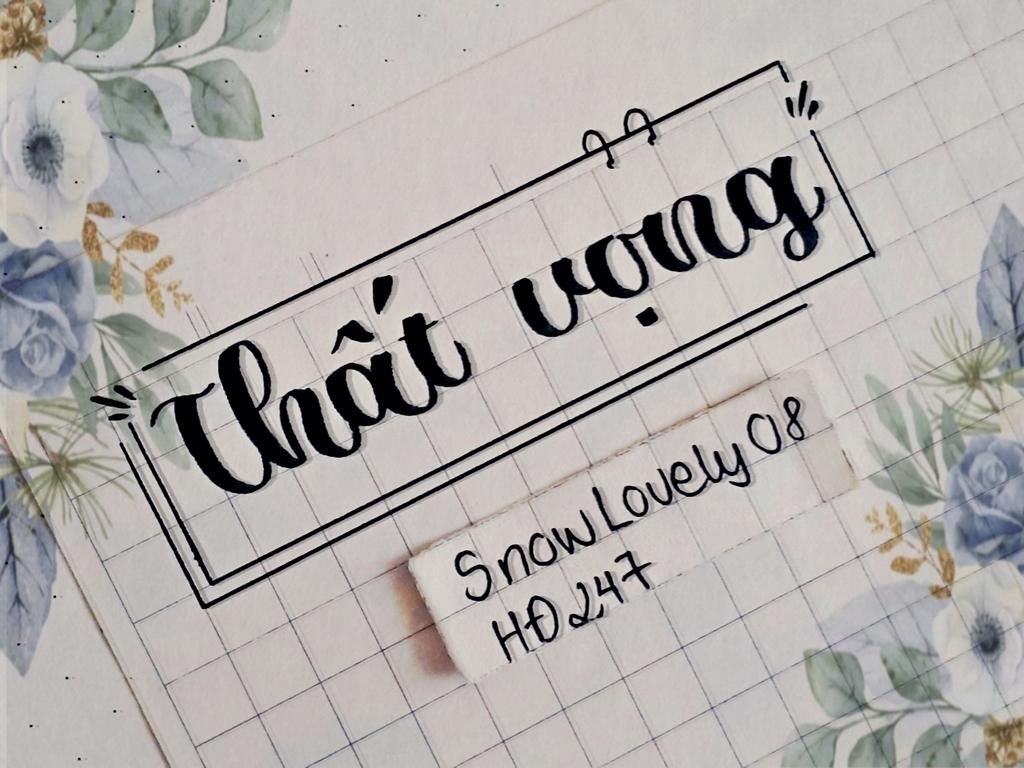 Thất vọng
SnowLovely08
HĐ247